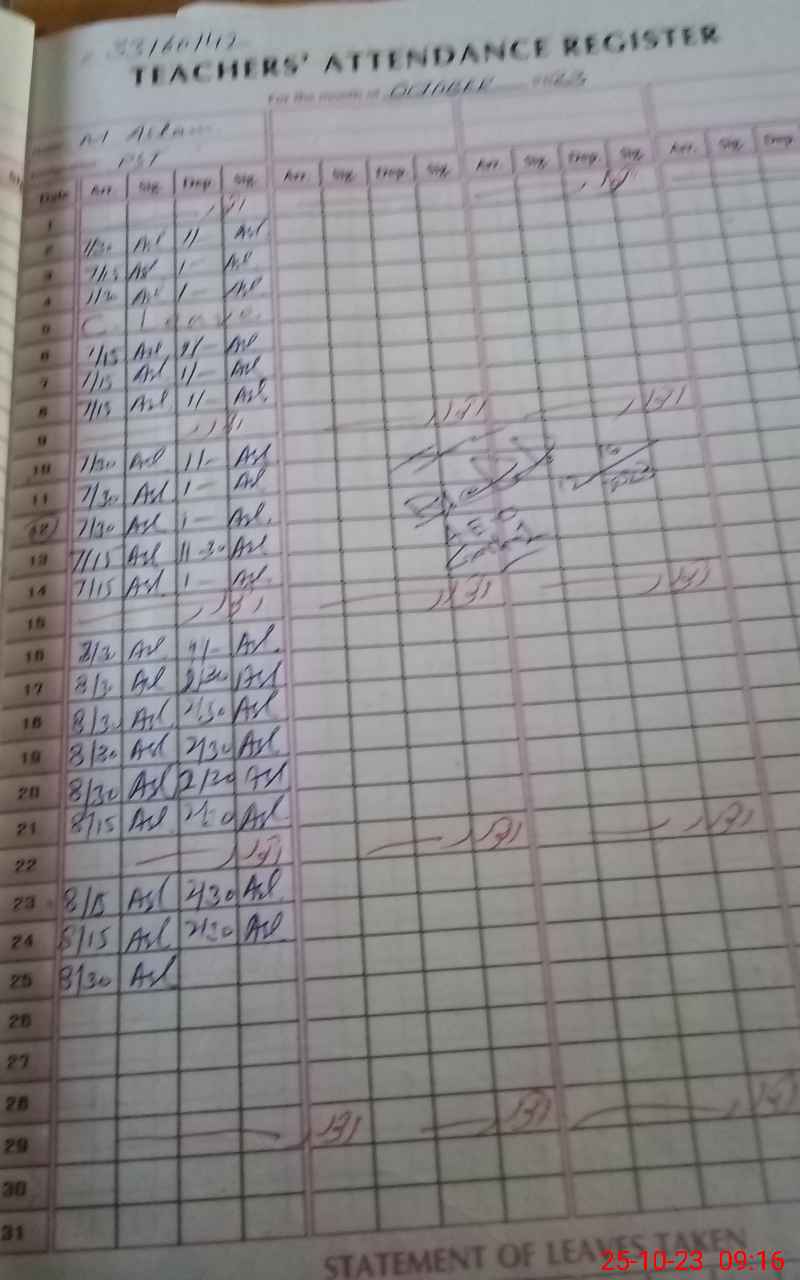 TEACHERS' ATTENDANCE REGISTER
For the month of OCTOBER 2023
M Aslam
PST
Date Arr. Sig. Dep. Sig. Arr. Sig. Dep. Sig. Arr. Sig. Dep. Sig. Arr. Sig. Dep.
1 اتوار
2 7/30 Asl 11 Asl
3 7/15 Asl 1- Asl
4 7/30 Asl 1- Asl
5 C. Leave.
6 7/15 Asl 11- Asl
7 7/15 Asl 11- Asl
8 7/15 Asl 11 Asl
9 اتوار اتوار اتوار
10 7/30 Asl 11- Asl
11 7/30 Asl 1- Asl
12 7/30 Asl 1- Asl.
13 7/15 Asl 11-30 Asl
14 7/15 Asl 1- Asl.
AEO
15 اتوار اتوار اتوار
16 8/30 Asl Asl.
17 8/30 Asl 2/30 Asl
18 8/30 Asl 2/30 Asl
19 8/30 Asl 2/30 Asl
20 8/30 Asl 12/30 Asl
21 8/15 Asl 2/30 Asl
22 اتوار اتوار اتوار
23 8/15 Asl 2/30 Asl
24 8/15 Asl 2/30 Asl
25 8/30 Asl
26
27
28
29 اتوار اتوار اتوار
30
31
STATEMENT OF LEAVES TAKEN
25-10-23 09:16